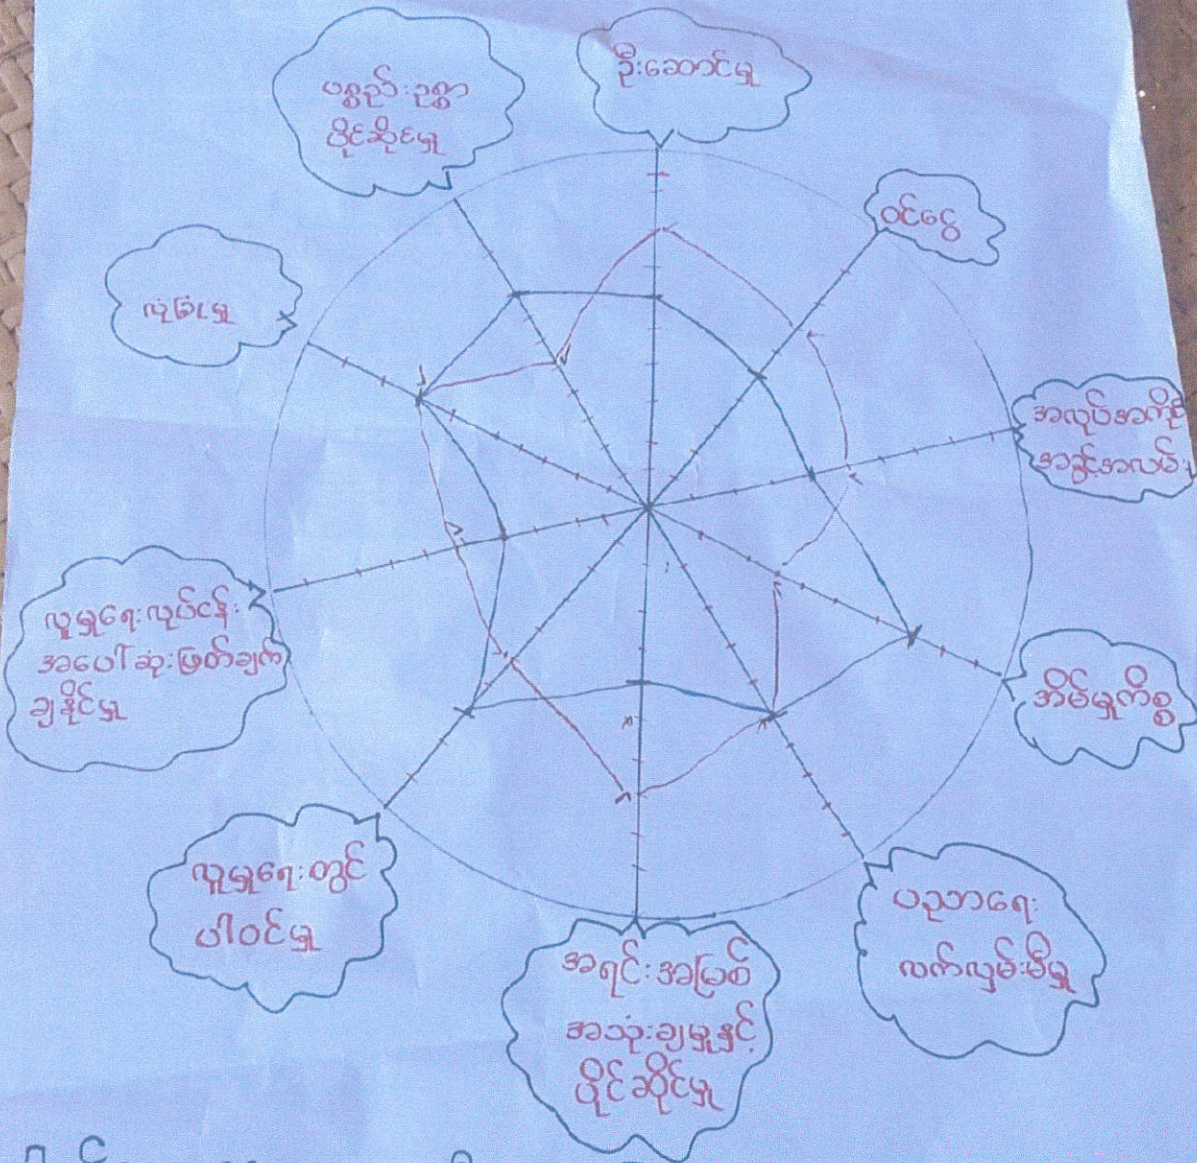 ဦးဆောင်မှု
ဝင်ငွေ
အလုပ်အကိုင်
အခွင့်အလမ်း
အိမ်မှုကိစ္စ
ပညာရေး
လက်လှမ်းမီမှု
အရင်းအမြစ်
အသုံးချမှုနှင့်
ပိုင်ဆိုင်မှု
လူမှုရေးတွင်
ပါဝင်မှု
လူမှုရေးလုပ်ငန်း
အပေါ်ဆုံးဖြတ်ချက်
ချနိုင်မှု
လုံခြုံမှု
ပစ္စည်းဥစ္စာ
ပိုင်ဆိုင်မှု